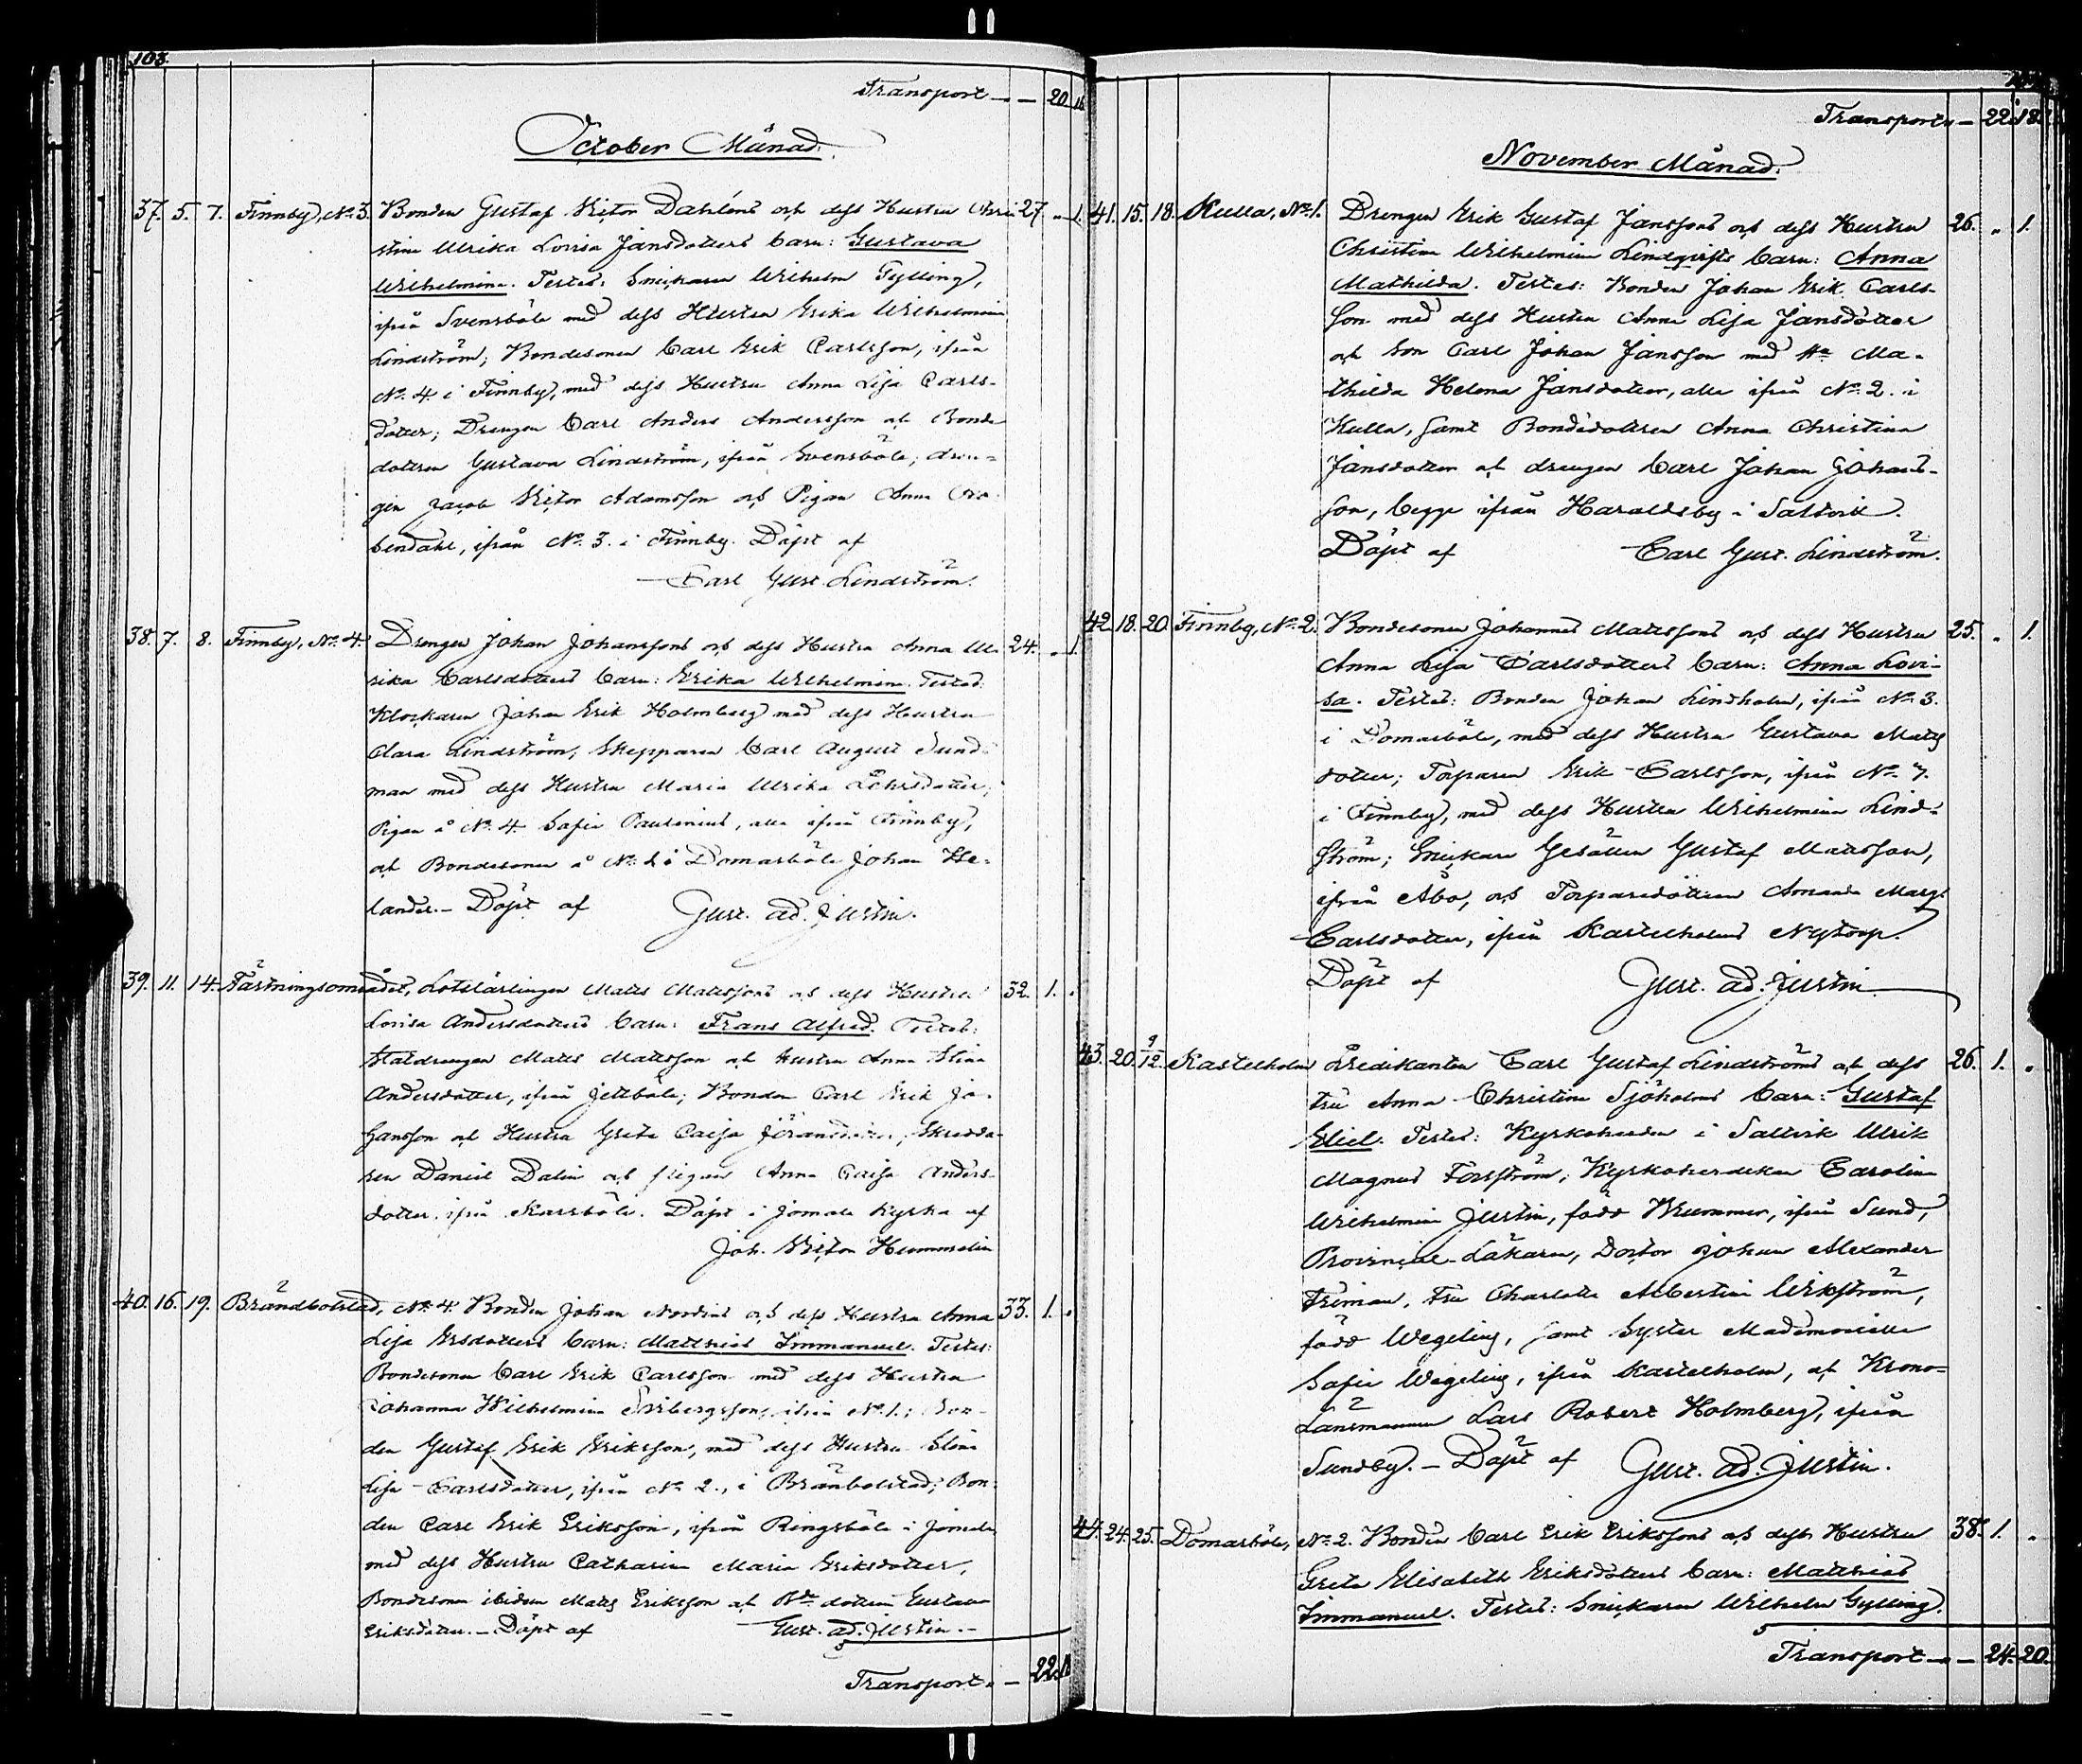 108.
Transport — 20. 16
October Månad.
37. 5. 7. Finnby, No. 3. Bonden Gustaf Victor Dahléns och dess Hustru Chri- 27. „ 1.
stina Ulrika Lovisa Jansdotters barn: Gustava
Wilhelmina. Testes: Snickaren Wilhelm Gylling,
ifrån Svensböle med dess Hustru Erika Wilhelmina
Lindström; Bondesonen Carl Erik Carlsson, ifrån
No. 4 i Finnby, med dess Hustru Anna Lisa Carls-
dotter; Drengen Carl Anders Andersson och Bonde
dottren Gustava Lindström, ifrån Svensböle; dren-
gen Jacob Victor Adamsson och Pigan Anna
bendahl, ifrån No. 3. i Finnby. Döpt af
Carl Gust. Lindström.
38. 7. 8. Finnby, No. 4. Drengen Johan Johanssons och dess Hustru Anna Ul- 24. „ 1.
rika Carlsdotters barn: Erika Wilhelmina. Testes:
Klockaren Johan Erik Holmberg med dess Hustru
Clara Lindström, Skepparen Carl August Sund-
man med dess Hustru Maria Ulrika
Pigan å No. 4 Sofia Paulinius, alla ifrån Finnby,
och Bondesonen å No. 1 i Domarböle Johan He-
lander. — Döpt af Gust. Ad. Justin.
39. 11. 14. Fästningsområdet, Lotslärlingen Matts Mattssons och dess Hustru 32. 1. „
Lovisa Andersdotters barn: Frans Alfred. Testes:
Statdrengen Matts Mattsson och Hustru Anna Stina
Andersdotter, ifrån Jettböle; Bonden Carl Erik Jo-
hansson och Hustru Greta Caisa Jöransdotter, Skredda-
ren Daniel Dalin och pigan Anna Caisa Anders-
dotter, ifrån Karrböle. Döpt i Jomala Kyrka af
Joh. Victor Hummelin
40. 16. 19. Brändbolstad, No. 4. Bonden Johan Nordins och dess Hustru Anna 33. 1. „
Lisa Ersdotters barn: Matthias Immanuel. Testes:
Bondesonen Carl Erik Carlsson med dess Hustru
Johanna Wilhelmina ifrån No. 1.; Bon-
den Gustaf Erik Eriksson, med dess Hustru Stina
Lisa Carlsdotter, ifrån No. 2., i Bränbolstad; Bon-
den Carl Erik Eriksson, ifrån Ringsböle i Jomala
med dess Hustru Catharina Maria Eriksdotter,
Bondesonen ibidem Matts Eriksson och Bde dottren Gustava
Eriksdotter. — Döpt af Gust. Ad. Justin. —
Transport. — 22. 18
Transport — 22. 18.
November Månad.
41. 15. 18. Kulla, No. 1. Drengen Erik Gustaf Janssons och dess Hustru 26. „ 1.
Christina Wilhelmina Lindqvists barn: Anna
Mathilda. Testes: Bonden Johan Erik Carls-
son med dess Hustru Anna Lisa Jansdotter
och Son Carl Johan Jansson med Hu Ma-
thilda Helena Jansdotter, alla ifrån No. 2. i
Kulla, samt Bondedottren Anna Christina
Jansdotter och drengen Carl Johan Johans-
son, begge ifrån Haraldsby i Saltvik.
Döpt af Carl Gust. Lindström.
42. 18. 20. Finnby, No. 2. Bondesonen Johannes Mattssons och dess Hustru 25. „ 1.
Anna Lisa Carlsdotters barn: Anna Lovi-
sa. Testes: Bonden Johan Lindholm, ifrån No. 3.
i Domarböle, med dess Hustru Gustava Matts
dotter; Torparen Erik Carlsson, ifrån No. 7.
i Finnby, med dess Hustru Wilhelmina Lind-
ström; Snickare Gesällen Gustaf Mattsson,
ifrån Åbo, och Torparedottren Amanda Marg.
Carlsdotter, ifrån Kastelholms Nytorp.
Döpt af Gust. Ad. Justin
43. 20. 9/12. Kastelholm Predikanten Carl Gustaf Lindströms och dess 26. 1. „
Fru Anna Christina Sjöholms barn: Gustaf
Eliel. Testes: Kyrkoherden i Saltvik Ulrik
Magnus Forsström; Kyrkoherdskan Carolina
Wilhelmina Justin, född Krummer, ifrån Sund,
Provincial-Läkaren, Doctor Johan Alexander
Friman, Fru Charlotte Albertina Wikström,
född Wegelius, samt Syster Mademoiselle
Sofia Wegelius, ifrån Kastelholm, och Krono-
Länsmannen Lars Robert Holmberg, ifrån
Sundby. — Döpt af Gust. Ad. Justin.
44. 24. 25. Domarböle, No. 2. Bonden Carl Erik Erikssons och dess Hustru 38. 1. „
Greta Elisabeth Eriksdotters barn: Matthias
Immanuel. Testes: Snickaren Wilhelm Gylling.
Transport — 24. 20.